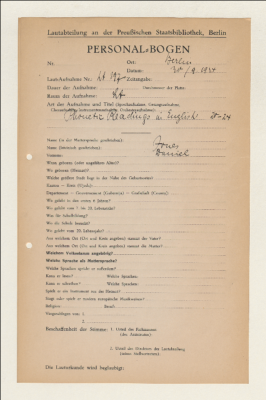 Lautabteilung an der Preußischen Staatsbibliothek, Berlin
PERSONAL-BOGEN
Nr.
Ort: Berlin
Datum: 30/9.1931
Lautaufnahme Nr.: LA
Zeitangabe:
Dauer der Aufnahme:
Durchmesser der Platte:
Raum der Aufnahme: LA
Art der Aufnahme und Titel
Phonetic Readings in English
Name (in der Muttersprache geschrieben):
Name (lateinisch geschrieben): Jones
Vorname: Daniel
Wann geboren (oder ungefähres Alter)?
Wo geboren (Heimat)?
Welche größere Stadt liegt in der Nähe des Geburtsortes?
Kanton — Kreis
Department — Gouvernement — Grafschaft (County)
Wo gelebt in den ersten 6 Jahren?
Wo gelebt vom 7. bis 20. Lebensjahr?
Was für Schulbildung?
Wo die Schule besucht?
Wo gelebt vom 20. Lebensjahr?
Aus welchem Ort (Ort und Kreis angeben) stammt der Vater?
Aus welchem Ort (Ort und Kreis angeben) stammt die Mutter?
Welchem Volksstamm angehörig?
Welche Sprache als Muttersprache?
Welche Sprachen spricht er außerdem?
Kann er lesen?
Welche Sprachen:
Kann er schreiben?
Welche Sprachen:
Spielt er ein Instrument aus der Heimat?
Singt oder spielt er moderne europäische Musikweisen?
Religion:
Beruf:
Vorgeschlagen von:
1.
2.
Beschaffenheit der Stimme:
1. Urteil des Fachmannes
(des Assistenten)
2. Urteil des Direktors der Lautabteilung
(seines Stellvertreters)
Die Lauturkunde wird beglaubigt: